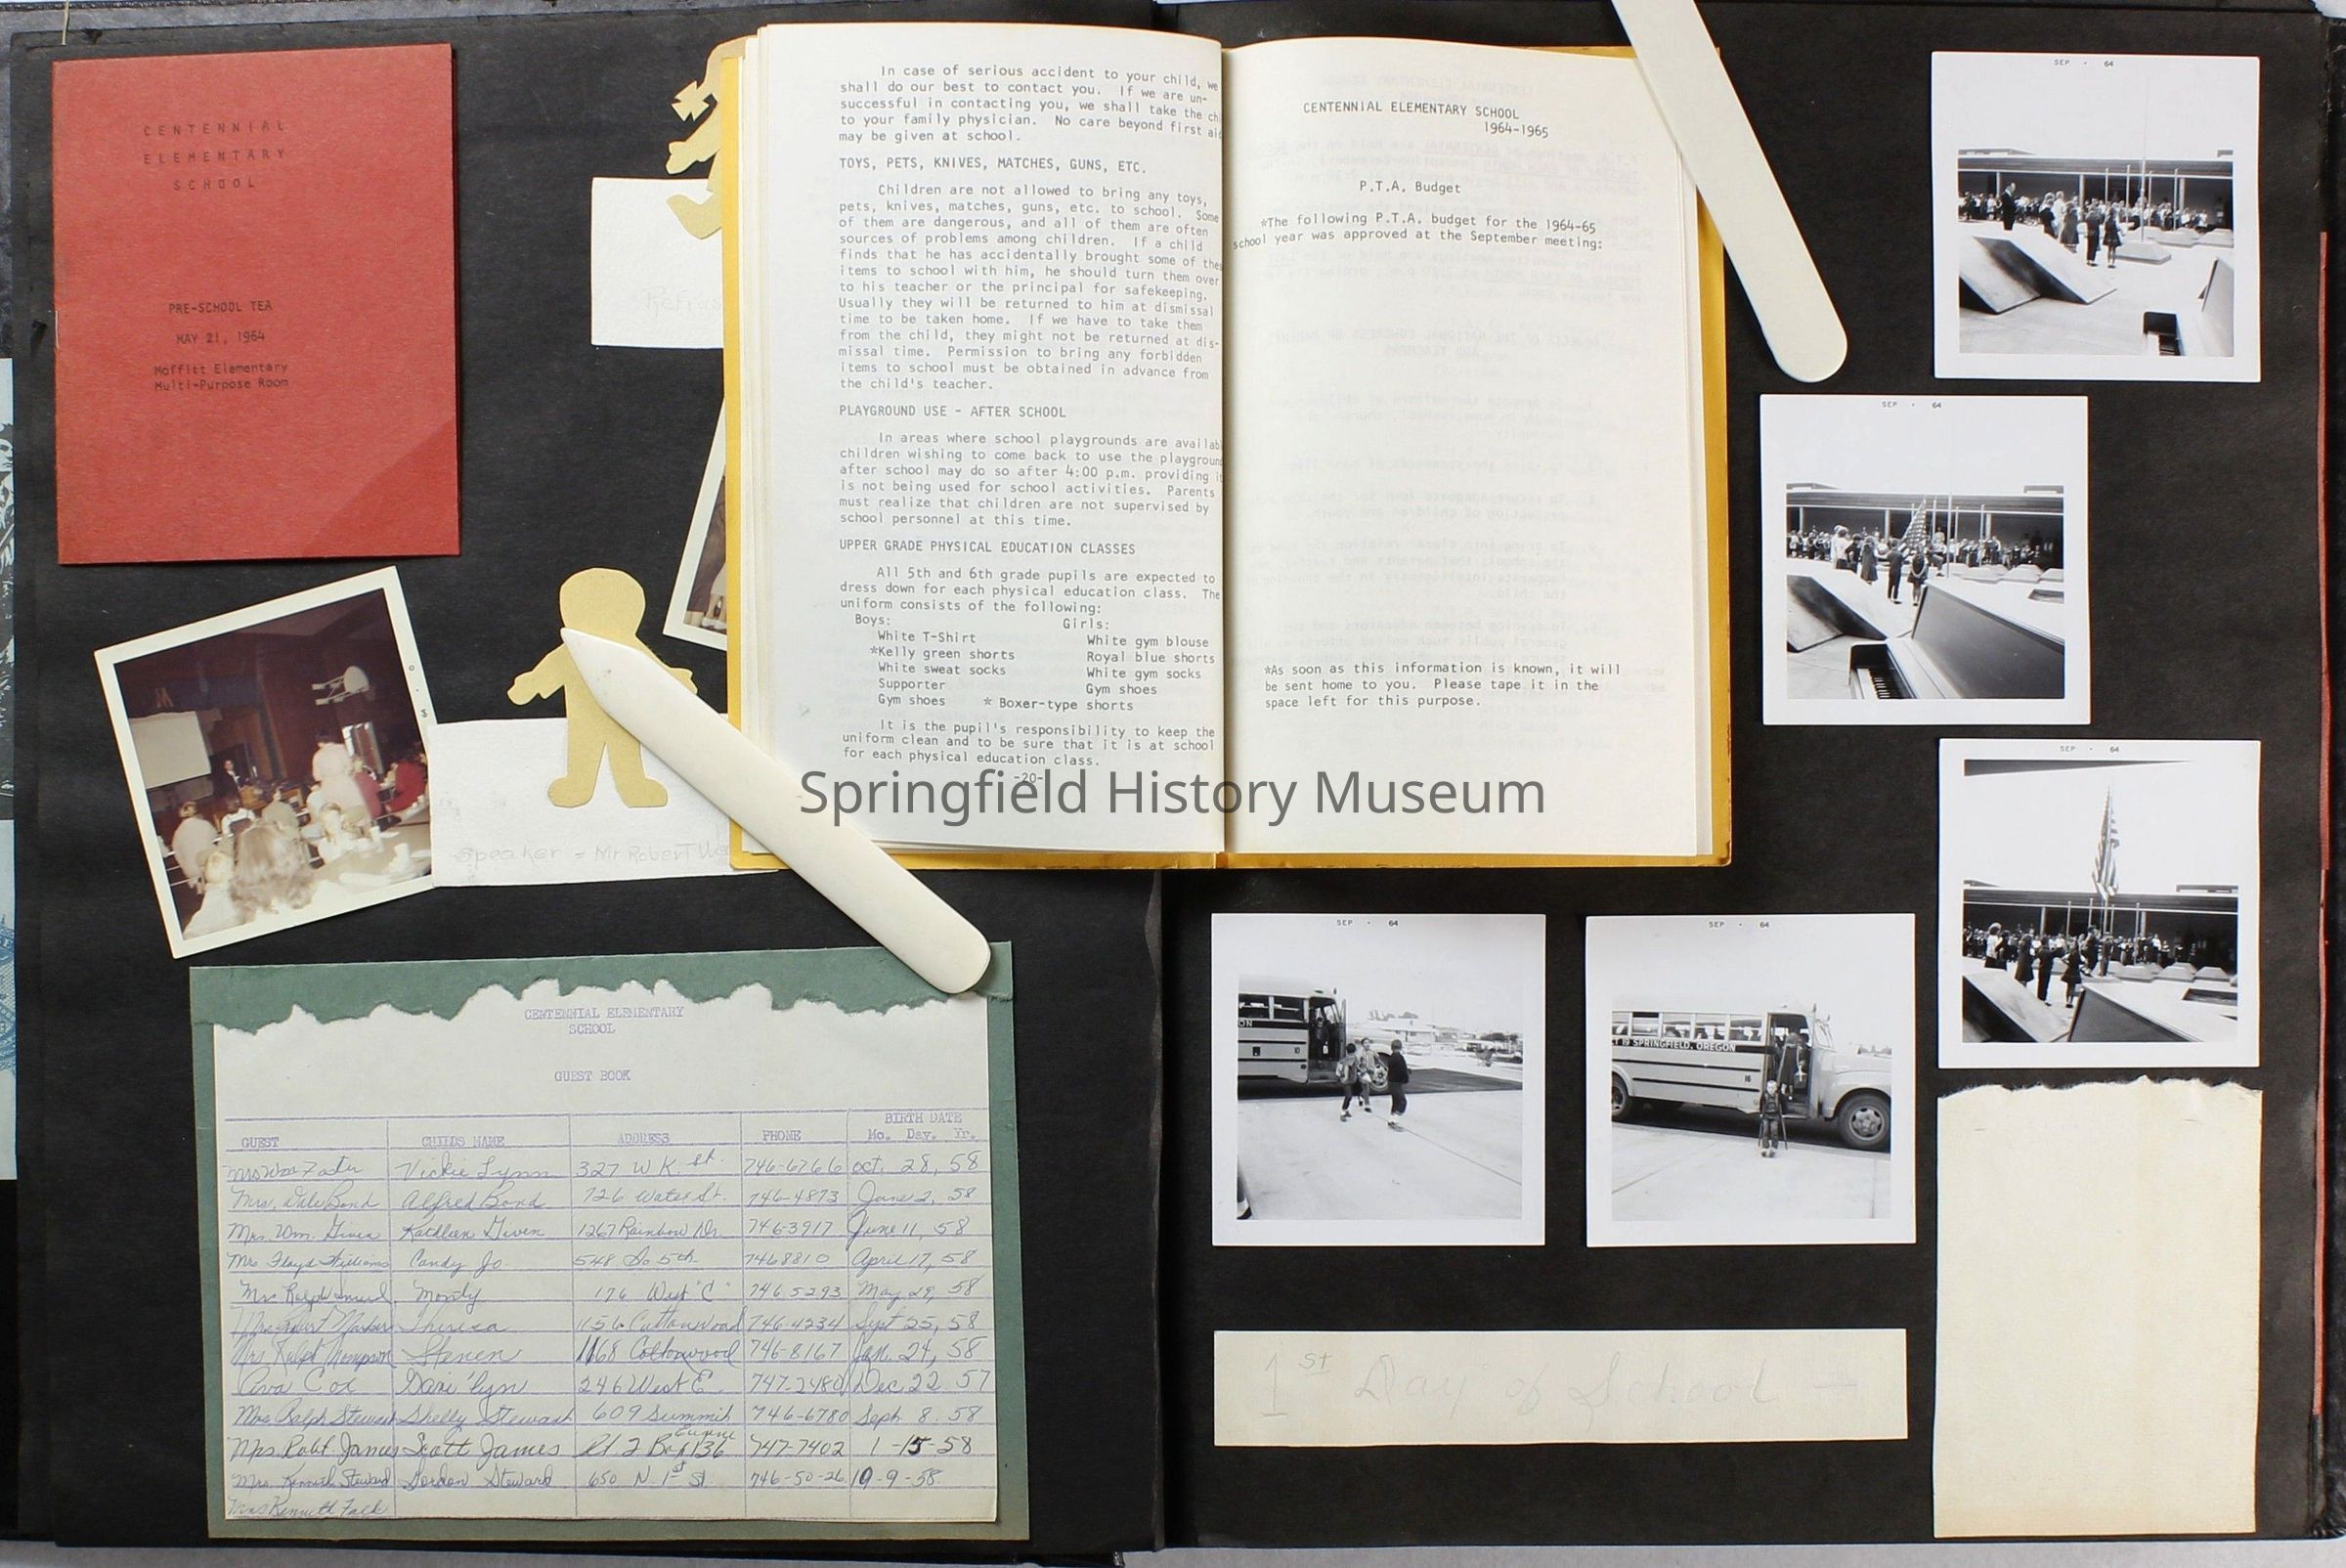 CENTENNIAL
ELEMENTARY
SCHOOL
PRE-SCHOOL TEA
MAY 21, 1964
Moffitt Elementary
Multi-Purpose Room
Speaker = Mr Robert
In case of serious accident to your child, we
shall do our best to contact you. If we are un-
successful in contacting you, we shall take the
to your family physician. No care beyond first
may be given at school.
TOYS, PETS, KNIVES, MATCHES, GUNS, ETC.
Children are not allowed to bring any toys,
pets, knives, matches, guns, etc. to school. Some
of them are dangerous, and all of them are often
sources of problems among children. If a child
finds that he has accidentally brought some of
items to school with him, he should turn them over
to his teacher or the principal for safekeeping.
Usually they will be returned to him at dismissal
time to be taken home. If we have to take them
from the child, they might not be returned at dis-
missal time. Permission to bring any forbidden
items to school must be obtained in advance from
the child's teacher.
PLAYGROUND USE - AFTER SCHOOL
In areas where school playgrounds are
children wishing to come back to use the playground
after school may do so after 4:00 p.m. providing
is not being used for school activities. Parents
must realize that children are not supervised by
school personnel at this time.
UPPER GRADE PHYSICAL EDUCATION CLASSES
All 5th and 6th grade pupils are expected to
dress down for each physical education class. The
uniform consists of the following:
Boys: Girls:
White T-Shirt White gym blouse
*Kelly green shorts Royal blue shorts
White sweat socks White gym socks
Supporter Gym shoes
Gym shoes * Boxer-type shorts
It is the pupil's responsibility to keep the
uniform clean and to be sure that it is at school
for each physical education class.
-20-
CENTENNIAL ELEMENTARY SCHOOL
1964-1965
P.T.A. Budget
*The following P.T.A. budget for the 1964-65
school year was approved at the September meeting:
*As soon as this information is known, it will
be sent home to you. Please tape it in the
space left for this purpose.
Springfield History Museum
SEP · 64
SEP · 64
SEP · 64
SEP · 64
SEP · 64
ON
10
19 SPRINGFIELD, OREGON
16
1st Day of School -
CENTENNIAL ELEMENTARY
SCHOOL
GUEST BOOK
GUEST CHILDS NAME ADDRESS PHONE BIRTH DATE
Mo. Day. Yr.
Mrs Wm Vickie Lynn 327 W K. St. 746-6766 Oct. 28, 58
Mrs. Dale Bond Alfred Bond 726 Water St. 746-4873 June 2, 58
Mrs. Wm. Given Kathleen Given 1267 Rainbow Dr. 746-3917 June 11, 58
Mrs Floyd Williams Candy Jo 548 So 5th 746 8810 April 17, 58
Mrs Ralph Monty 176 West "C" 746 5293 May 29, 58
Mrs Theresa 1156 Cottonwood 746-4234 Sept 25, 58
Mrs. Ralph Thompson Steven 1168 Cottonwood 746-8167 Jan. 24, 58
Ava Cox 246 West E 747-2480 Dec 22 57
Mrs Ralph Stewart Shelly Stewart 609 Summit 746-6780 Sept 8. 58
Mrs. Robt. James Scott James Rt. 2 Box 136 Eugene 747-7402 1-15-58
Mrs. Kenneth Steward Gordon Steward 650 N. 1st St. 746-50-26 10-9-58
Mrs Kenneth Falk